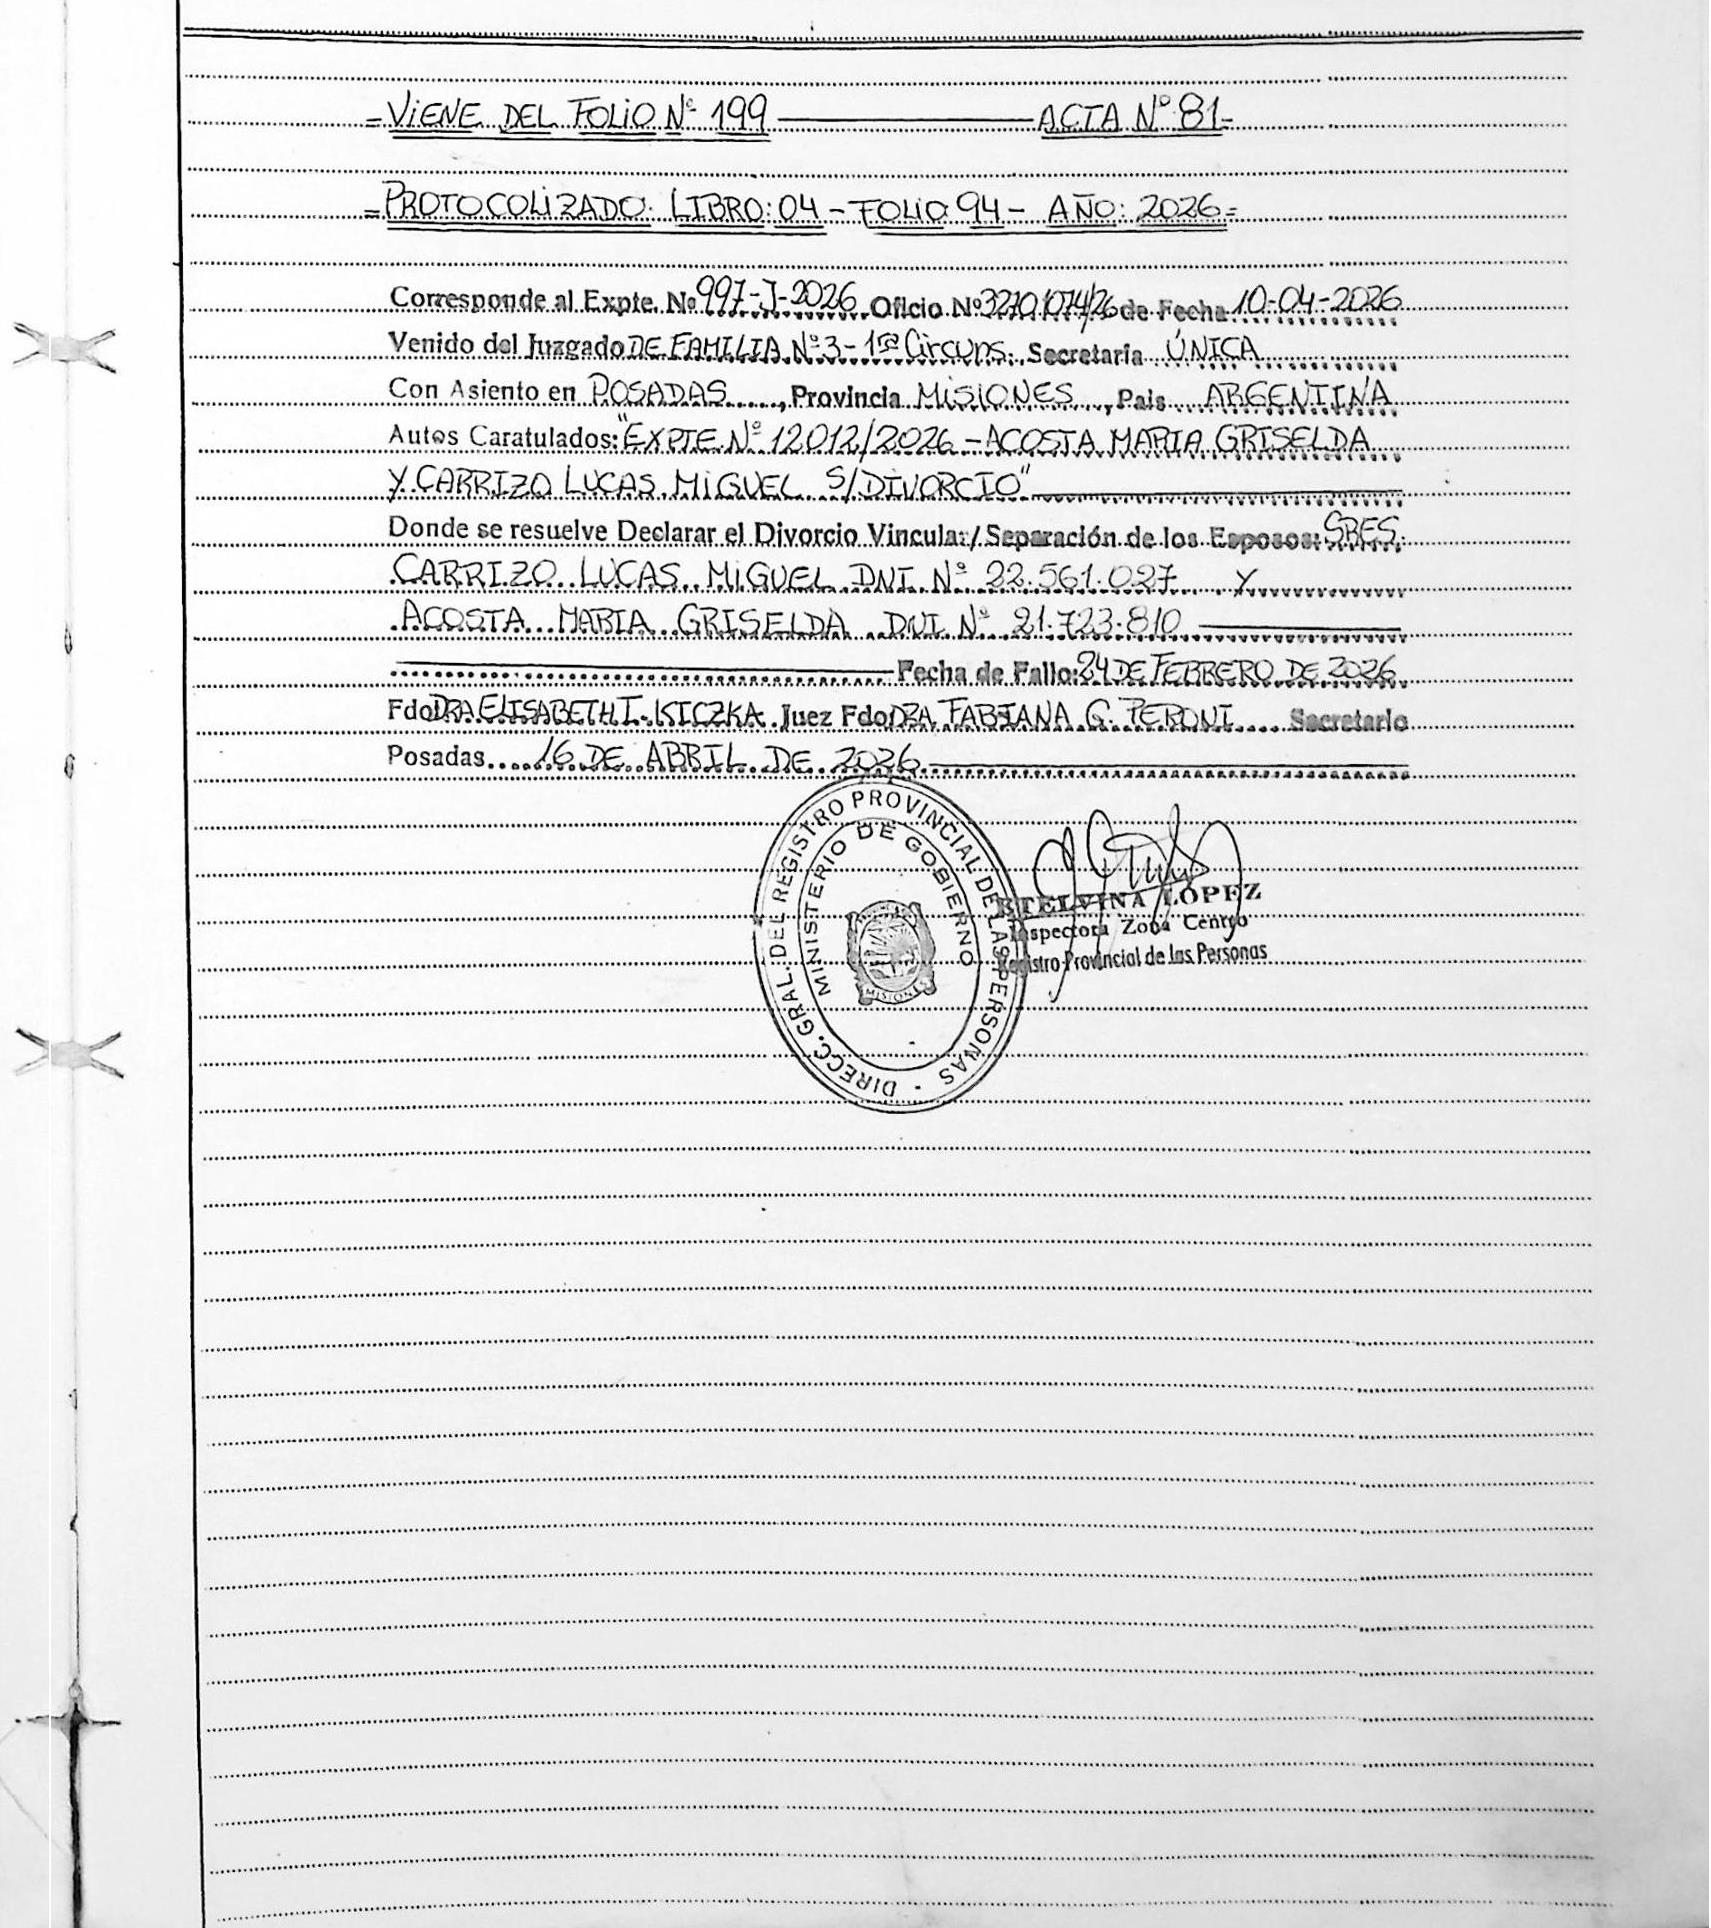 =VIENE DEL FOLIO Nº 199 ———— ACTA Nº 81=
=PROTOCOLIZADO: LIBRO: 04 - FOLIO 94 - AÑO: 2026=
Corresponde al Expte. Nº 997-J-2026 Oficio Nº 3270/074/26 de Fecha 10-04-2026
Venido del Juzgado DE FAMILIA Nº 3 - 1ra Circuns. Secretaria ÚNICA
Con Asiento en POSADAS, Provincia MISIONES, Pais ARGENTINA
Autos Caratulados: "EXPTE. Nº 12012/2026 - ACOSTA MARIA GRISELDA
Y CARRIZO LUCAS MIGUEL S/DIVORCIO"
Donde se resuelve Declarar el Divorcio Vincular/Separación de los Esposos: SRES.
CARRIZO LUCAS MIGUEL DNI Nº 22.561.027 Y
ACOSTA MARIA GRISELDA DNI Nº 21.723.810
Fecha de Fallo: 24 DE FEBRERO DE 2026
Fdo DRA ELISABETH I. KICZKA Juez Fdo DRA FABIANA G. PERONI Secretario
Posadas 16 DE ABRIL DE 2026
DIRECC. GRAL. DEL REGISTRO PROVINCIAL DE LAS PERSONAS -
MINISTERIO DE GOBIERNO
MISIONES
ETELVINA LÓPEZ
Inspectora Zona Centro
Registro Provincial de las Personas